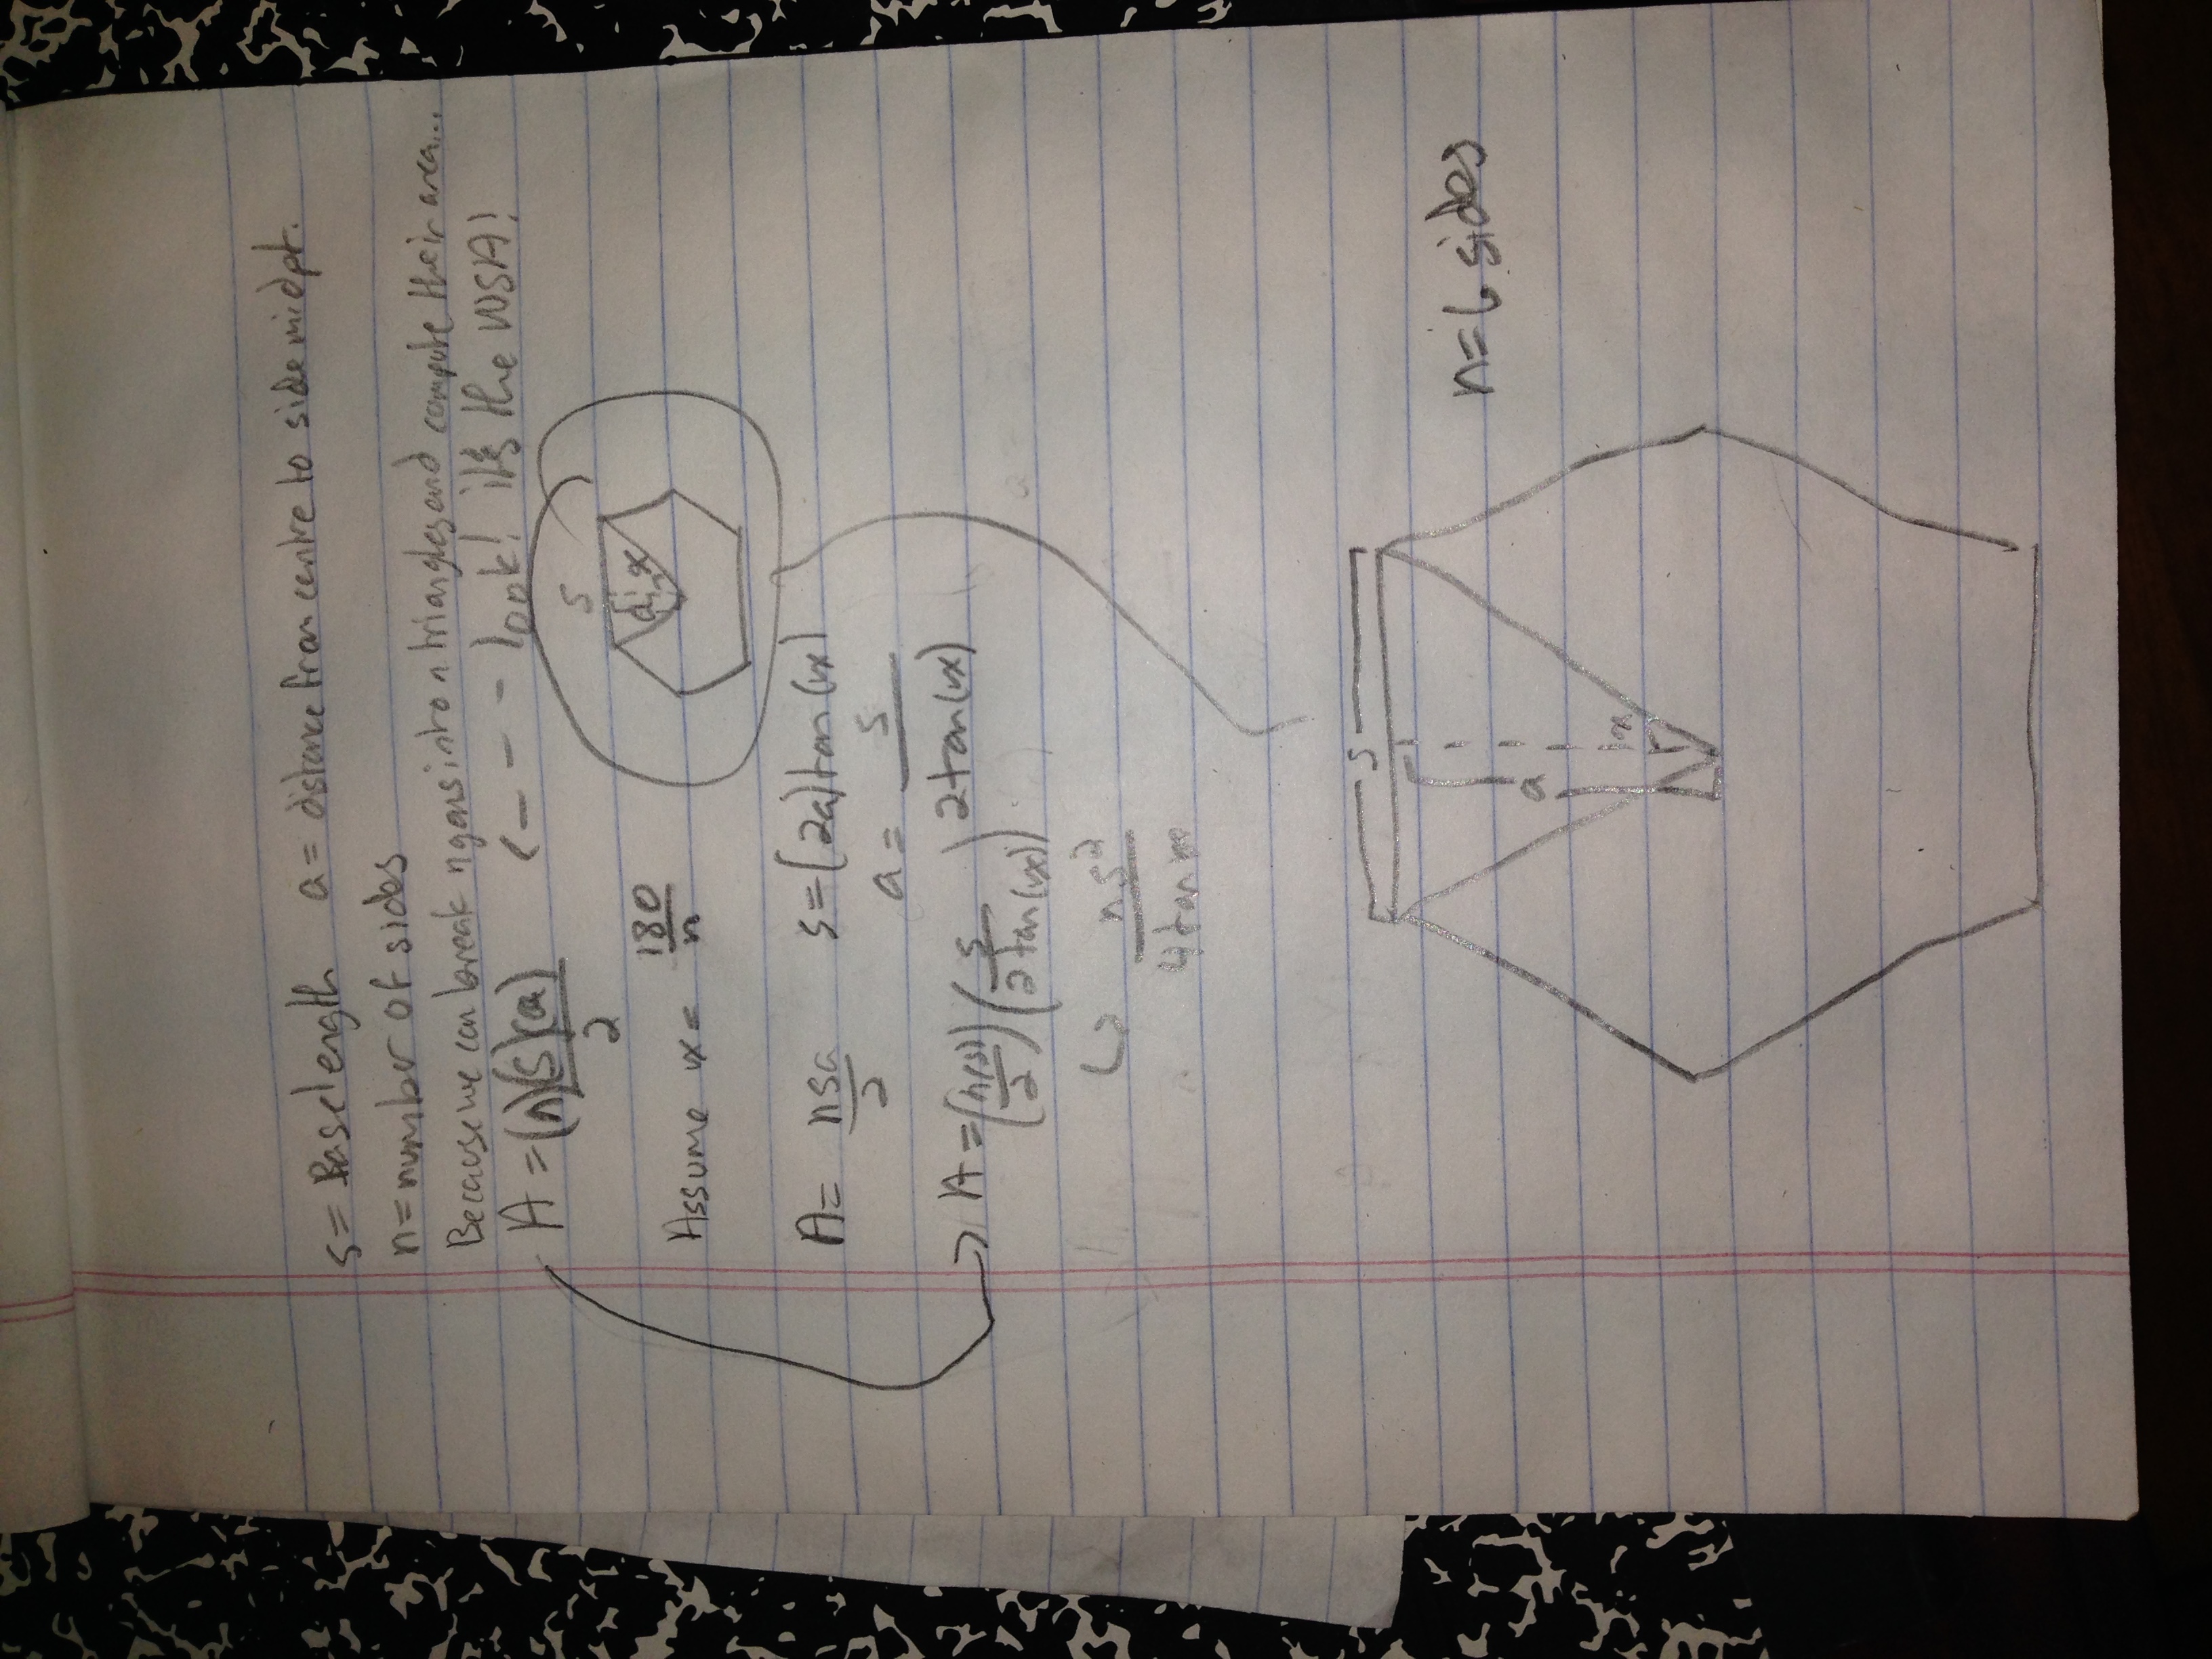 s = Base length a = distance from centre to side midpt.
n = number of sides
Because we can break ngons into n triangles and compute their area...
A = (n)(s)(a)/2 <--- look! it's the NSA!
s
a x
Assume x = 180/n
A = nsa/2 s = (2a)tan(x)
a = s/2tan(x)
→ A = (n(s)/2)(s/2tan(x))
↳ ns²/4tan
s
n = 6 sides
a
x